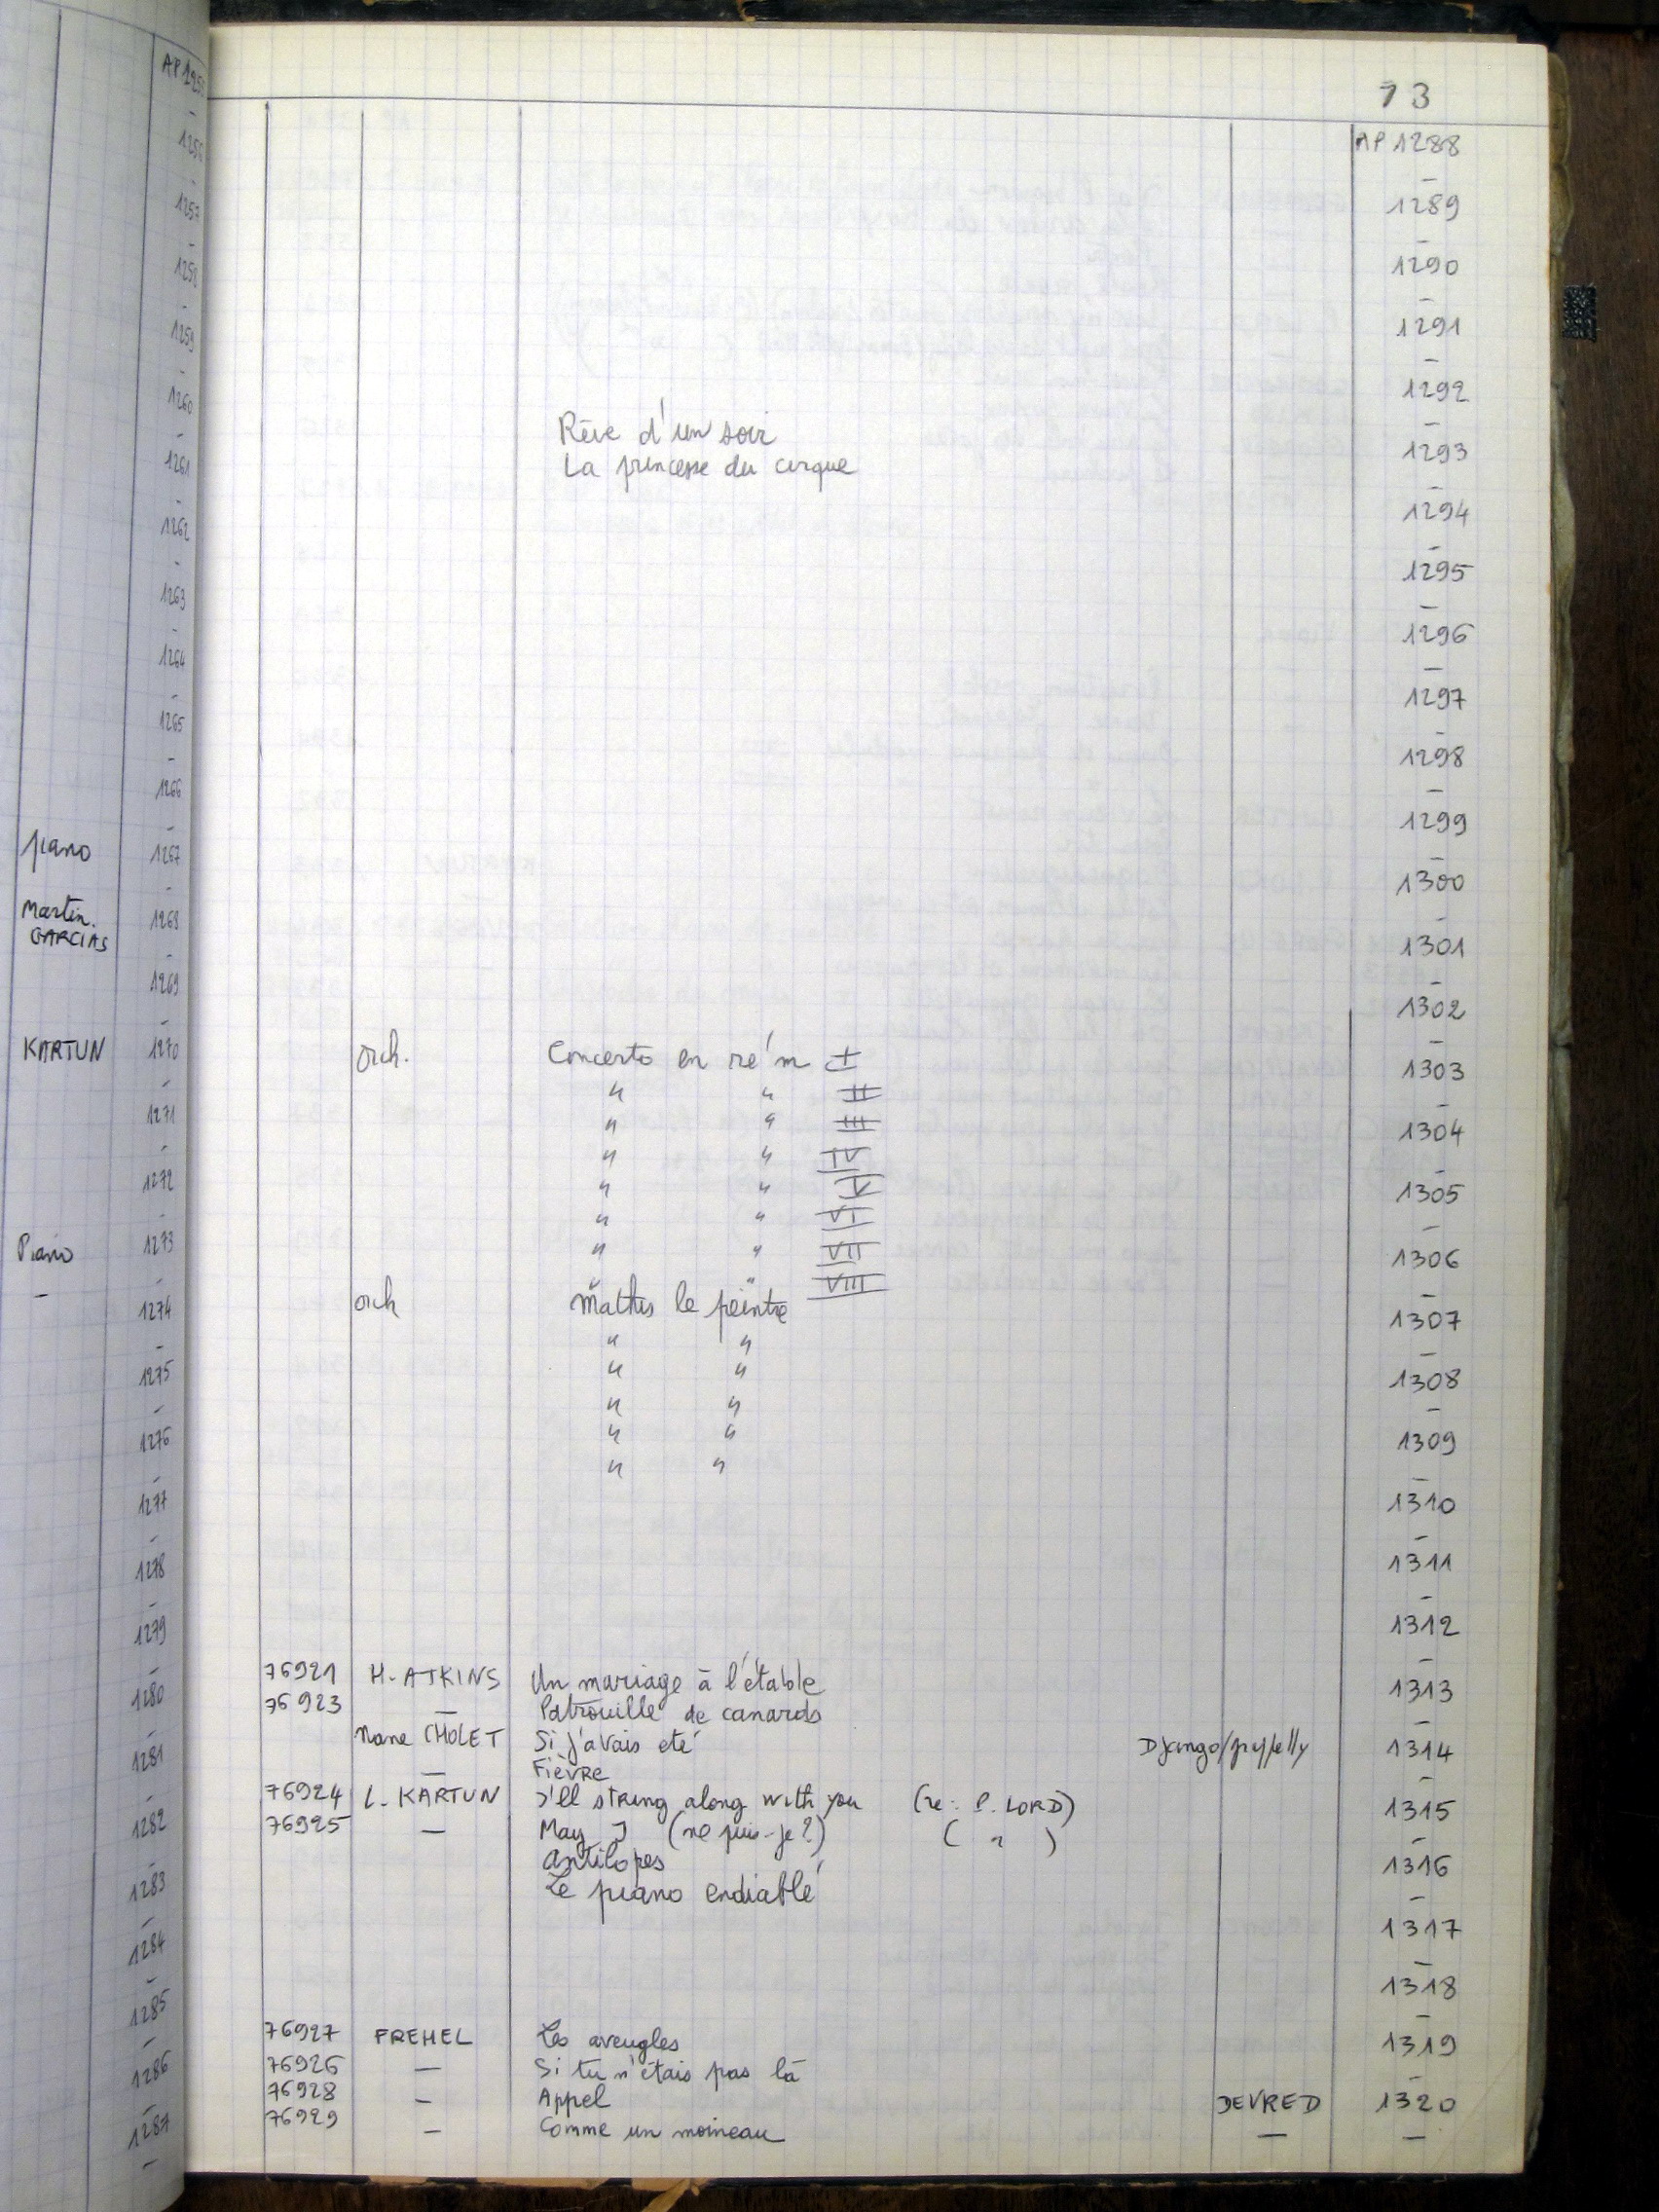 73
AP 1288
–
1289
–
1290
–
1291
–
1292
Rêve d'un soir – 1293
La princesse du cirque
–
1294
–
1295
–
1296
–
1297
–
1298
–
1299
–
1300
–
1301
–
1302
–
orch. Concerto en ré m I 1303
" " II –
" " III 1304
" " IV –
" " V 1305
" " VI –
" " VII 1306
" " VIII –
orch Mathis le peintre 1307
" " –
" " 1308
" " –
" " 1309
" " –
1310
–
1311
–
1312
–
76921 H. ATKINS Un mariage à l'étable 1313
76923 — Patrouille de canards –
Nane CHOLET Si j'avais été Django/ 1314
— Fièvre –
76924 L. KARTUN I'll string along with you (re: P. LORD) 1315
76925 — May I (ne puis-je?) ( " ) –
Antilopes 1316
Le piano endiablé –
1317
–
1318
–
76927 FREHEL Les aveugles 1319
76926 — Si tu n'étais pas là –
76928 – Appel DEVRED 1320
76929 – Comme un moineau — —
AP 125
–
1256
–
1257
–
1258
–
1259
–
1260
–
1261
–
1262
–
1263
–
1264
–
1265
–
1266
–
piano 1267
–
Martin. 1268
GARCIAS
–
1269
–
KARTUN 1270
–
1271
–
1272
–
Piano 1273
– –
1274
–
1275
–
1276
–
1277
–
1278
–
1279
–
1280
–
1281
–
1282
–
1283
–
1284
–
1285
–
1286
–
1287
–